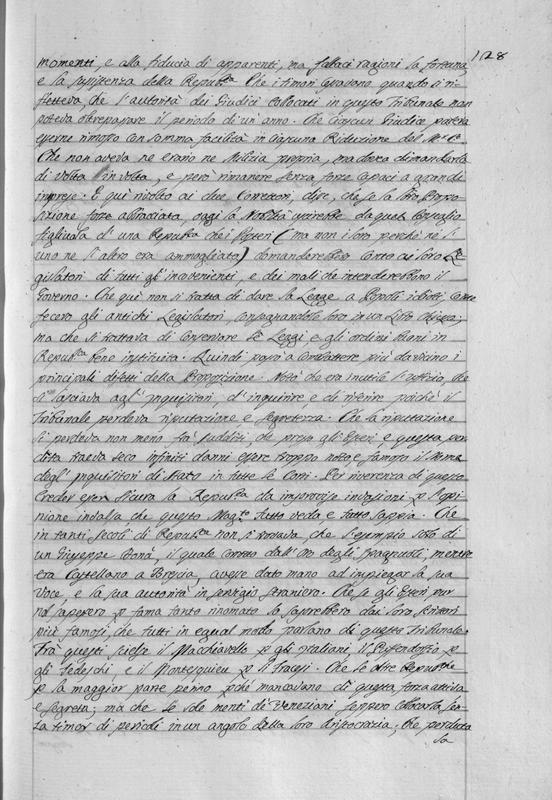 128
momenti, e alla fiducia di apparenti, ma fallaci ragioni la fortuna
e la sussistenza della Repub.ca Che i timori cessavano, quando si ri-
fletteva, che l'autorità dei Giudici collocati in questo Tribunale non
poteva oltrepassare il periodo di un anno. Che ciascun Giudice poteva
essere rimosso con somma facilità in ciascuna Riduzione del M.r C.o
Che non aveva ne erario ne Milizia propria, ma dover dimandarla
di volta in volta, e però rimanere senza forze capaci a grandi
imprese. E quì rivolto ai due Correttori, disse, che se la loro Propo-
sizione fosse abbracciata, oggi la Nobiltà uscirebbe da quel Consiglio
figliuola d'una Repub.ca che i Posteri (ma non i loro perchè nè l'
uno ne l'altro era ammogliato) domanderebbero conto ai loro Le-
gislatori di tutti gl'inconvenienti, e dei mali che intenderebbero il
Governo. Che quì non si tratta di dare la Legge a Popoli idioti, come
fecero gli antichi Legislatori, consegnandola loro in un Libro chiusa;
ma che si trattava di conservare le Leggi e gli ordini buoni in
Repub.ca bene instituita. Quindi passò a combattere più da vicino i
principali difetti della Proposizione. Notò che era inutile l'uffizio, che
si lasciava agl'Inquisitori, d'inquirire e di riferire poichè il
Tribunale perdeva riputazione, e segretezza. Che la riputazione
si perdeva non meno fra sudditi, che presso gli Esteri e questa per-
dita traeva seco infiniti danni essere troppo noto e famoso il Nome
degl'Inquisitori di Stato in tutte le Corti. Per riverenza di questo
creder esser sicura la Repub.ca da improvvise invasioni p l'opi-
nione invalsa, che questo Mag.to tutto veda e tutto sappia. Che
in tanti secoli di Repub.ca non si trovava, che l'esempio solo di
un Giuseppe Donà, il quale corrotto dall'oro degli Spagnuoli, mentre
era Castellano a Brescia, avesse dato mano ad impiegar la sua
voce, e la sua autorità in servigio straniero. Che se gli Esteri pur
nol sapessero p fama tanto rinomato lo saprebbero dai loro Scrittori
più famosi, che tutti in egual modo parlano di questo Tribunale.
Frà questi scelse il Macchiavello p gli Italiani, il Puffendorfio p
gli Tedeschi, e il Montesquieu p li Francesi. Che le altre Repub.che
p la maggior parte perirono pchè mancavano di questa forza attiva
e segreta; ma che le sole menti de' Veneziani seppero collocarla sen-
za timor di pericoli in un angolo della loro Aristocrazia; Che perduta
la